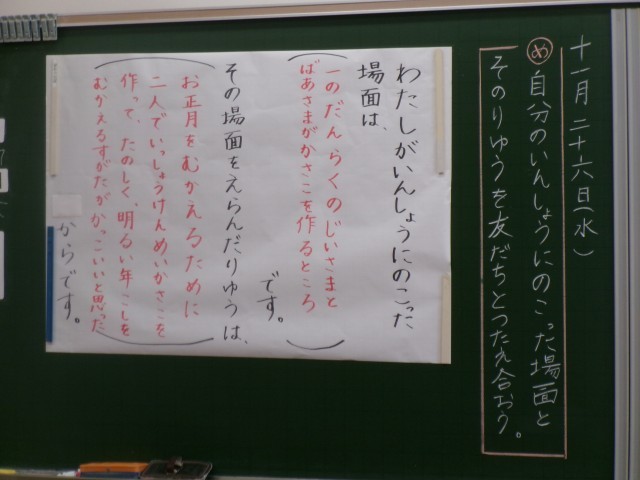 十一月二十六日(水)
め 自分のいんしょうにのこった場面と
そのりゆうを友だちとつたえ合おう。
わたしがいんしょうにのこった
場面は、
(一のだんらくのじいさまと
ばあさまがかさこを作るところ)
です。
その場面をえらんだりゆうは、
(お正月をむかえるために
二人でいっしょうけんめいかさこを
作って、たのしく、明るい年こしを
むかえるすがたがかっこいいと思った)
からです。